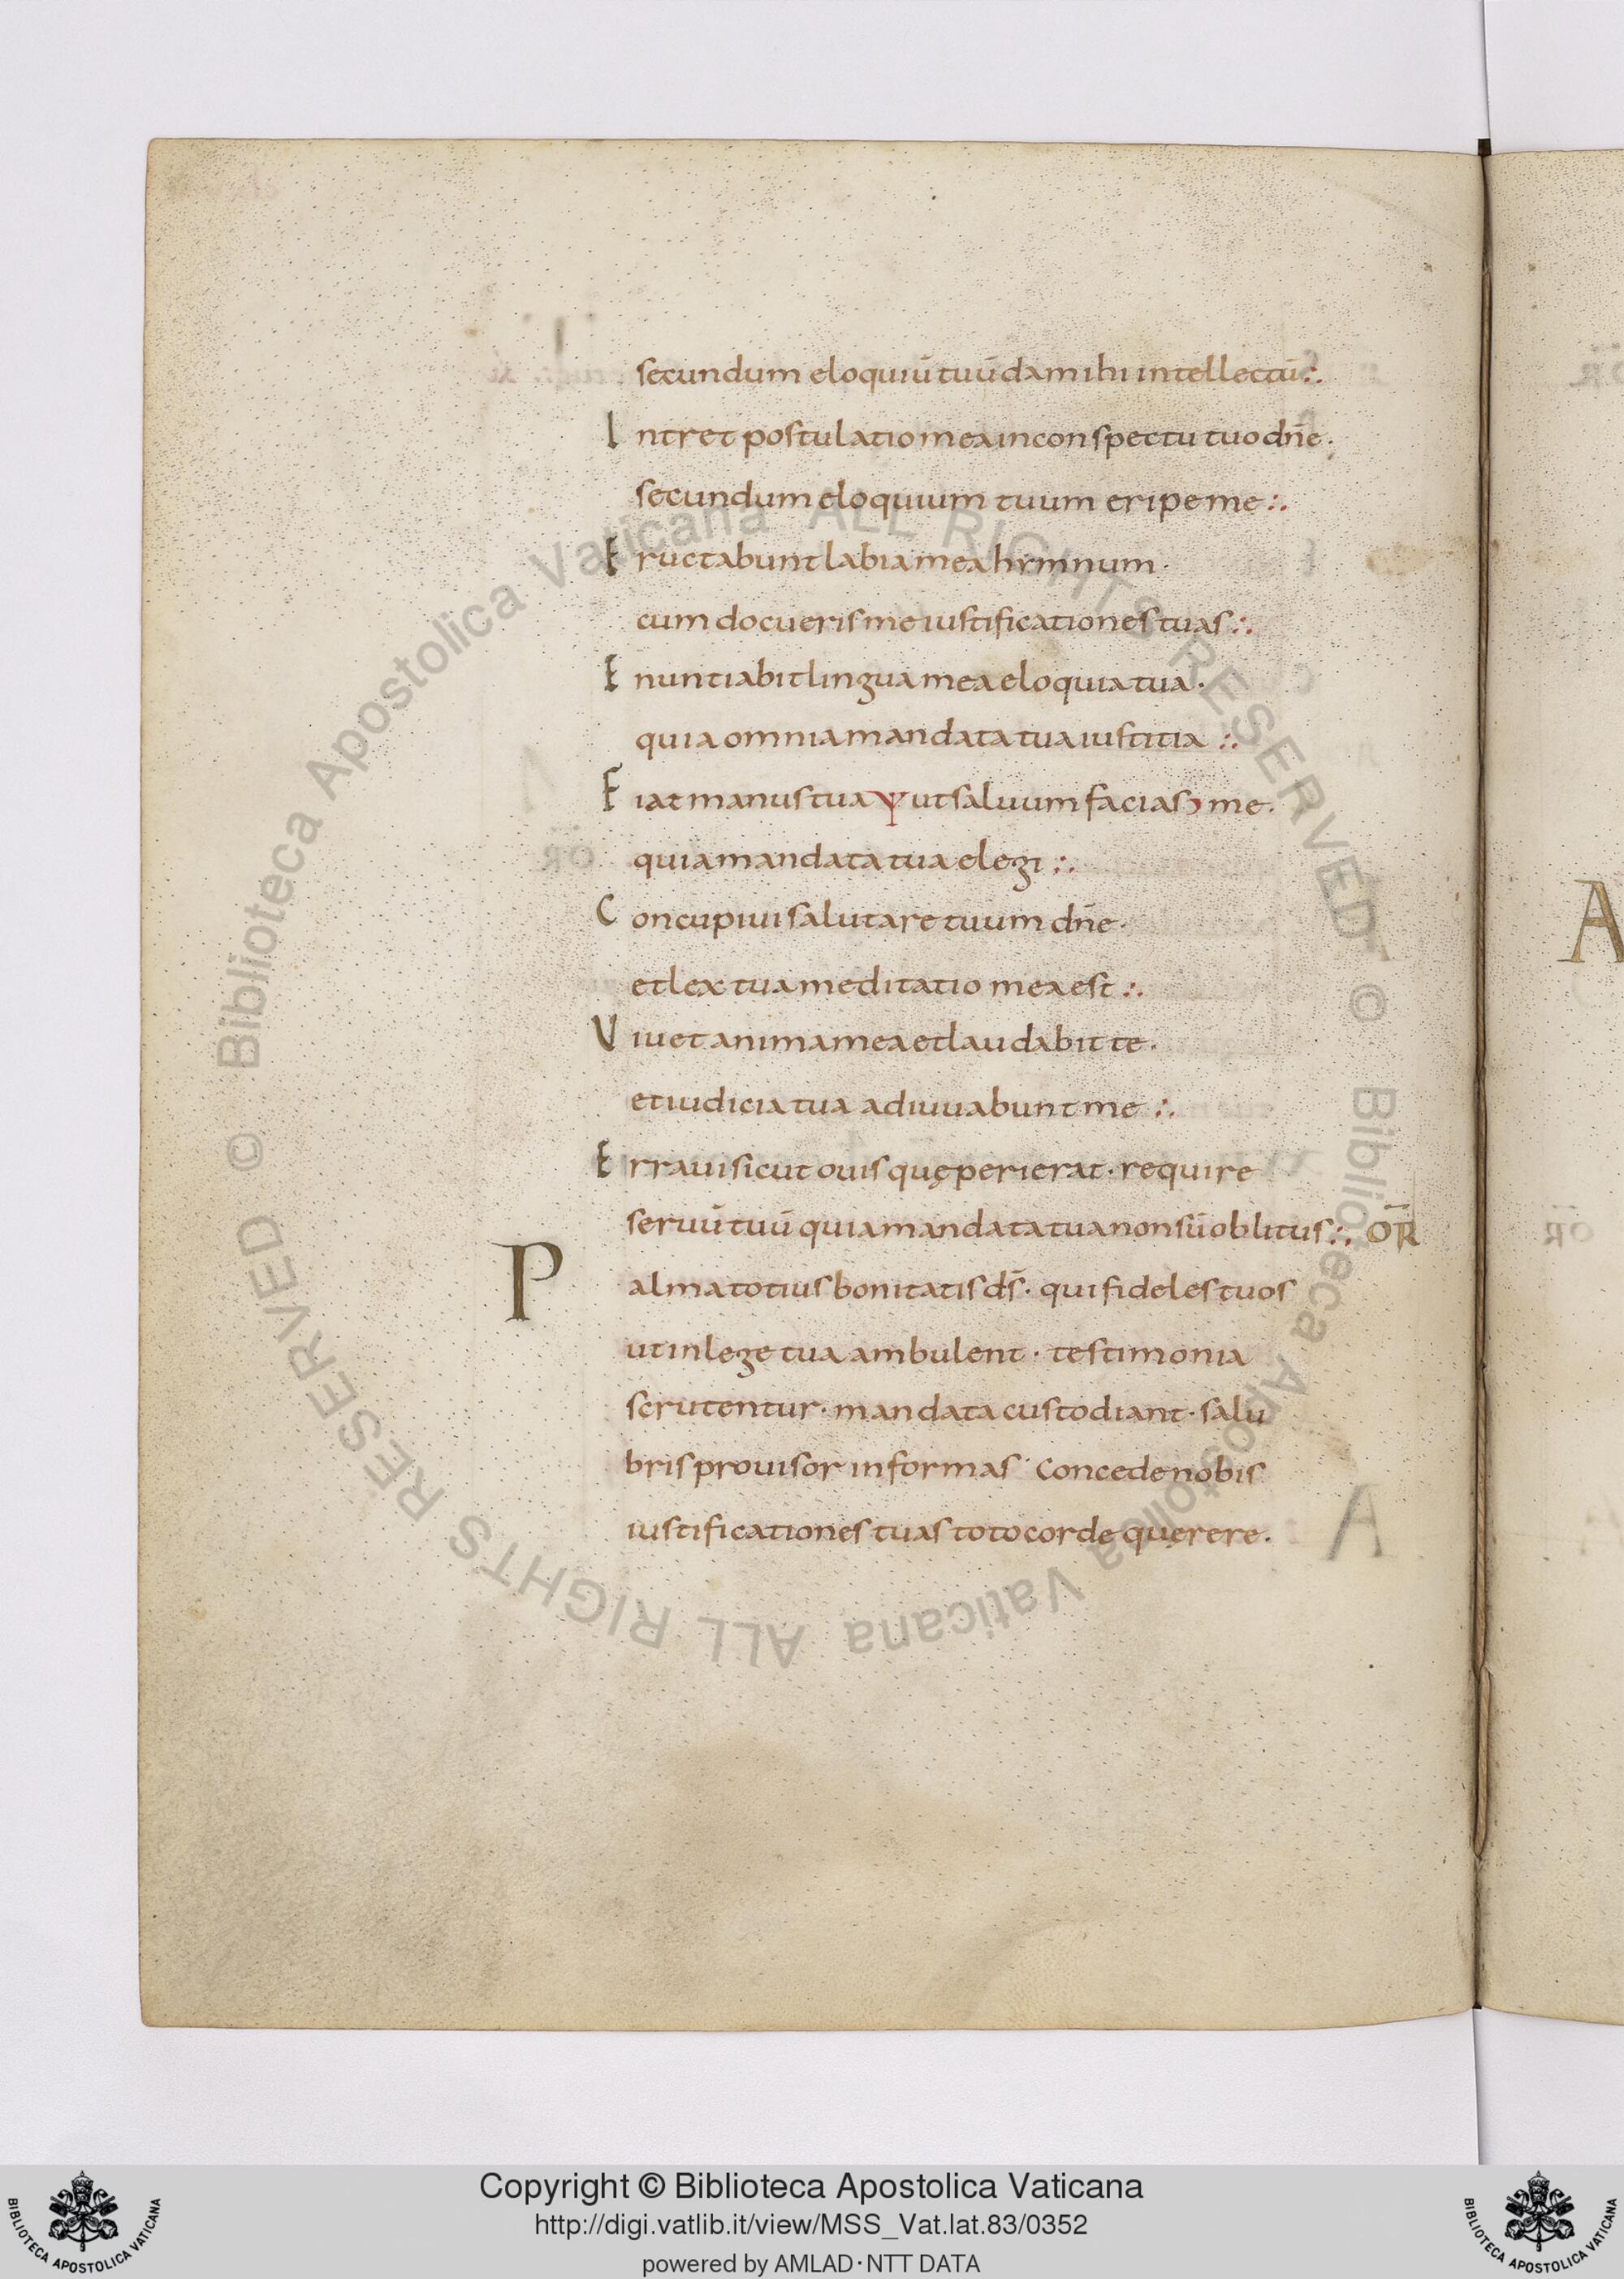 secundum eloquiū tuū da mihi intellectū :.
Intret postulatio mea in conspectu tuo dn̄e .
secundum eloquium tuum eripe me :.
Eructabunt labia mea hymnum .
cum docueris me iustificationes tuas :.
Enuntiabit lingua mea eloquia tua .
quia omnia mandata tua iustitia :.
Fiat manus tua ut saluum facias me .
quia mandata tua elegi :.
Concupiui salutare tuum dn̄e .
et lex tua meditatio mea est :.
Uiuet anima mea et laudabit te .
et iudicia tua adiuuabunt me :.
Erraui sicut ouis quę perierat . require
seruū tuū quia mandata tua non sū oblitus :. OR̄
Palma totius bonitatis ds̄ . qui fideles tuos
ut in lege tua ambulent . testimonia
scrutentur . mandata custodiant . salu
bris prouisor informas . Concede nobis
iustificationes tuas toto corde quęrere .
A
© Biblioteca Apostolica Vaticana ALL RIGHTS RESERVED © Biblioteca Apostolica Vaticana ALL RIGHTS RESERVED
Copyright © Biblioteca Apostolica Vaticana
http://digi.vatlib.it/view/MSS_Vat.lat.83/0352
powered by AMLAD·NTT DATA
BIBLIOTECA APOSTOLICA VATICANA
BIBLIOTECA APOSTOLICA VATICANA